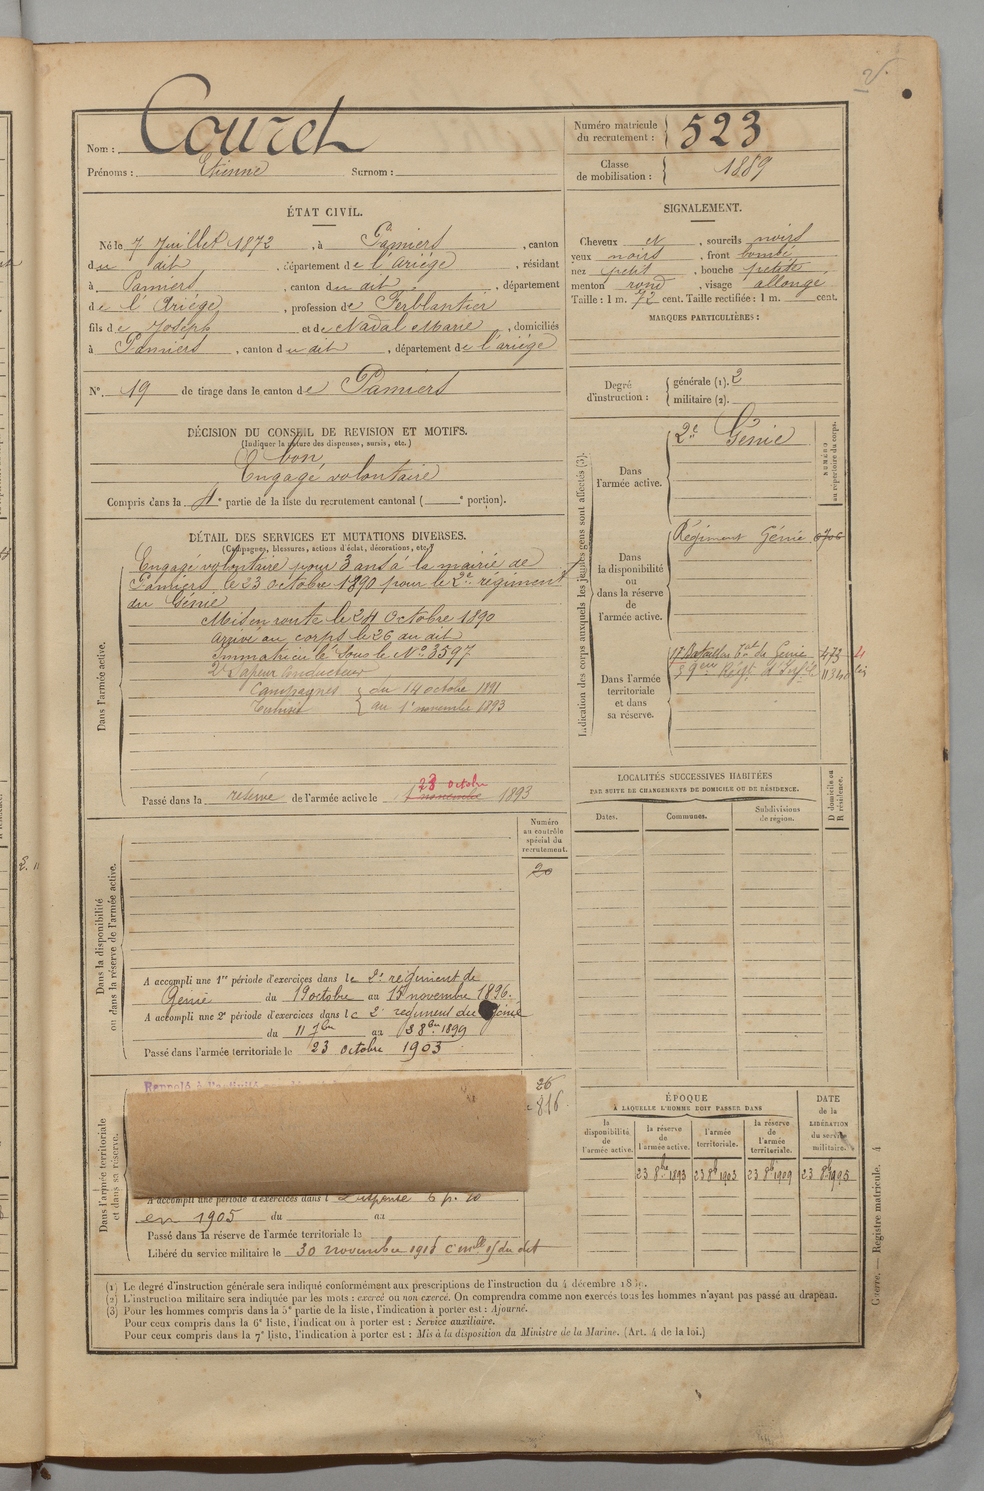 Nom : Couret
Prénoms : Etienne Surnom :
Numéro matricule du recrutement : 523
Classe de mobilisation : 1889
ÉTAT CIVIL.
Né le 7 Juillet 1872, à Pamiers, canton
du dit, département de l'Ariège, résidant
à Pamiers, canton du dit, département
de l'Ariège, profession de Ferblantier
fils de Joseph et de Nadal Marie, domiciliés
à Pamiers, canton du dit, département de l'ariège
N° 19 de tirage dans le canton de Pamiers
DÉCISION DU CONSEIL DE REVISION ET MOTIFS.
(Indiquer la nature des dispenses, sursis, etc.)
bon
Engagé volontaire
Compris dans la 4e partie de la liste du recrutement cantonal ( e portion).
SIGNALEMENT.
Cheveux et, sourcils noirs
yeux noirs, front bombé
nez petit, bouche petite
menton rond, visage allongé
Taille : 1 m. 72 cent. Taille rectifiée : 1 m. cent.
MARQUES PARTICULIÈRES :
Degré d'instruction : générale (1). 2
militaire (2).
DÉTAIL DES SERVICES ET MUTATIONS DIVERSES.
(Campagnes, blessures, actions d'éclat, décorations, etc.)
Dans l'armée active.
Engagé volontaire pour 3 ans à la mairie de
Pamiers le 23 octobre 1890 pour le 2e régiment
du Génie
Mis en route le 24 Octobre 1890
Arrivé au corps le 26 du dit
Immatriculé sous le No 3597
2e Sapeur Conducteur
Campagnes du 14 octobre 1891
au 1r novembre 1893
Passé dans la réserve de l'armée active le 1 novembre 23 octobre 1893
Indication des corps auxquels les jeunes gens sont affectés (3).
NUMÉRO au répertoire du corps.
Dans l'armée active.
2e Génie
Dans la disponibilité ou dans la réserve de l'armée active.
Régiment Génie
Dans l'armée territoriale et dans sa réserve.
17e Bataillon Tal du Génie 473
LOCALITÉS SUCCESSIVES HABITÉES
PAR SUITE DE CHANGEMENTS DE DOMICILE OU DE RÉSIDENCE.
Dates. Communes. Subdivisions de région.
D domicile ou R résidence.
Dans la disponibilité ou dans la réserve de l'armée active.
Numéro au contrôle spécial du recrutement.
20
A accompli une 1re période d'exercices dans le 2e régiment de
Génie du 19 octobre au 15 novembre 1896.
A accompli une 2e période d'exercices dans le 2e régiment du Génie
du 11 7bre au 8 8bre 1899
Passé dans l'armée territoriale le 23 octobre 1903
Dans l'armée territoriale et dans sa réserve.
26
816
A accompli une période d'exercices dans l
en 1905 du au
Passé dans la réserve de l'armée territoriale le
Libéré du service militaire le 30 novembre 1915
ÉPOQUE
A LAQUELLE L'HOMME DOIT PASSER DANS
la disponibilité de l'armée active.
la réserve de l'armée active.
l'armée territoriale.
la réserve de l'armée territoriale.
DATE de la LIBÉRATION du service militaire.
23 8bre 1893 23 8b 1903 23 8b 1909
(1) Le degré d'instruction générale sera indiqué conformément aux prescriptions de l'instruction du 4 décembre
(2) L'instruction militaire sera indiquée par les mots : exercé ou non exercé. On comprendra comme non exercés tous les hommes n'ayant pas passé au drapeau.
(3) Pour les hommes compris dans la 5e partie de la liste, l'indication à porter est : Ajourné.
Pour ceux compris dans la 6e liste, l'indication à porter est : Service auxiliaire.
Pour ceux compris dans la 7e liste, l'indication à porter est : Mis à la disposition du Ministre de la Marine. (Art. 4 de la loi.)
Guerre. — Registre matricule. 4